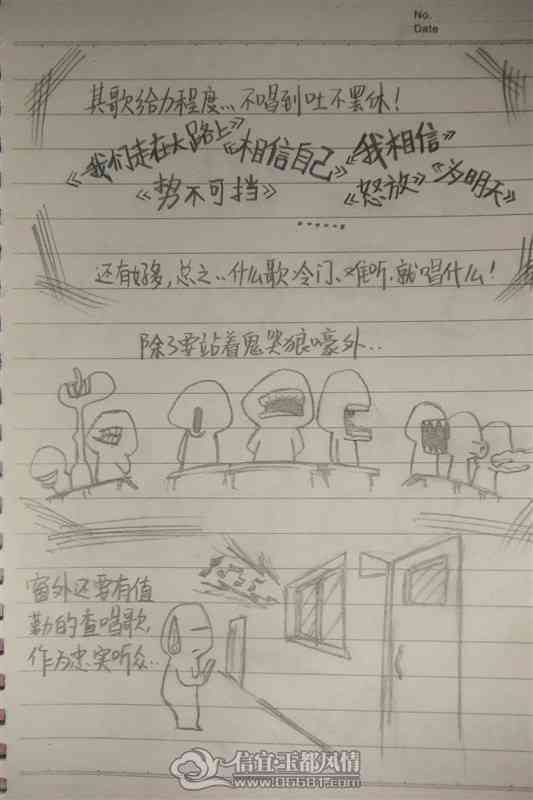 No.
Date
其歌给力程度... 不唱到吐不罢休！
《我们走在大路上》《相信自己》《我相信》
《势不可挡》《怒放》《为明天》
......
还有好多，总之..什么歌冷门、难听.就唱什么！
除了要站着鬼哭狼嚎外..
窗外还要有值
勤的查唱歌，
作为忠实听众..
信宜玉都风情
www.06681.com